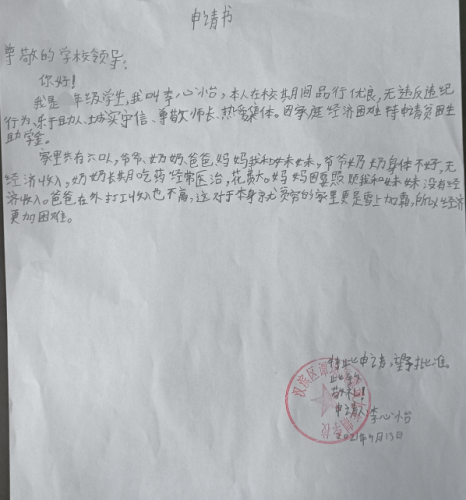 申请书
尊敬的学校领导:
你好!
我是 年级学生,我叫李心怡,本人在校期间品行优良,无违反违纪
行为、乐于助人、诚实守信、尊敬师长、热爱集体。因家庭经济困难特申请贫困生
助学金。
家里共有六口人,爷爷、奶奶、爸爸、妈妈我和妹妹,爷爷奶奶身体不好,无
经济收入,奶奶长期吃药经常医治,花费大。妈妈因要照顾我和妹妹没有经
济收入。爸爸在外打工收入也不高,这对于本身就贫穷的家里更是雪上加霜,所以经济
更加困难。
特此申请,望予批准。
此致
敬礼!
申请人:李心怡
2021年9月13日
汉滨区